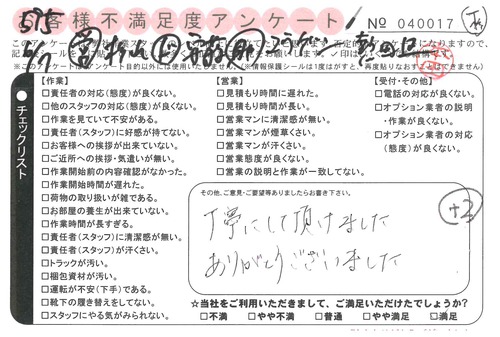 お客様不満足度アンケート
NO 040017
575
【作業】
□責任者の対応(態度)が良くない。
□他のスタッフの対応(態度)が良くない。
□作業を見ていて不安がある。
□責任者(スタッフ)に好感が持てない。
□お客様への挨拶が出来ていない。
□ご近所への挨拶・気遣いが無い。
□作業開始前の内容確認がなかった。
□作業開始時間が遅れた。
□荷物の取り扱いが雑である。
□お部屋の養生が出来ていない。
□作業時間が長すぎる。
□責任者(スタッフ)に清潔感が無い。
□責任者(スタッフ)が汗くさい。
□トラックが汚い。
□梱包資材が汚い。
□運転が不安(下手)である。
□靴下の履き替えをしてない。
□スタッフにやる気がみられない。
【営業】
□見積もり時間に遅れた。
□見積もり時間が長い。
□営業マンに清潔感が無い。
□営業マンが煙草くさい。
□営業マンが汗くさい。
□営業態度が良くない。
□営業の説明と作業が一致してない。
【受付・その他】
□電話の対応が良くない。
□オプション業者の説明
・作業が良くない。
□オプション業者の対応
(態度)が良くない。
●チェックリスト
その他、ご意見・ご要望等ありましたらお書き下さい。
丁寧にして頂けました
ありがとうございました
+2
☆当社をご利用いただきまして、ご満足いただけたでしょうか?
□不満 □やや不満 □普通 □やや満足 □満足